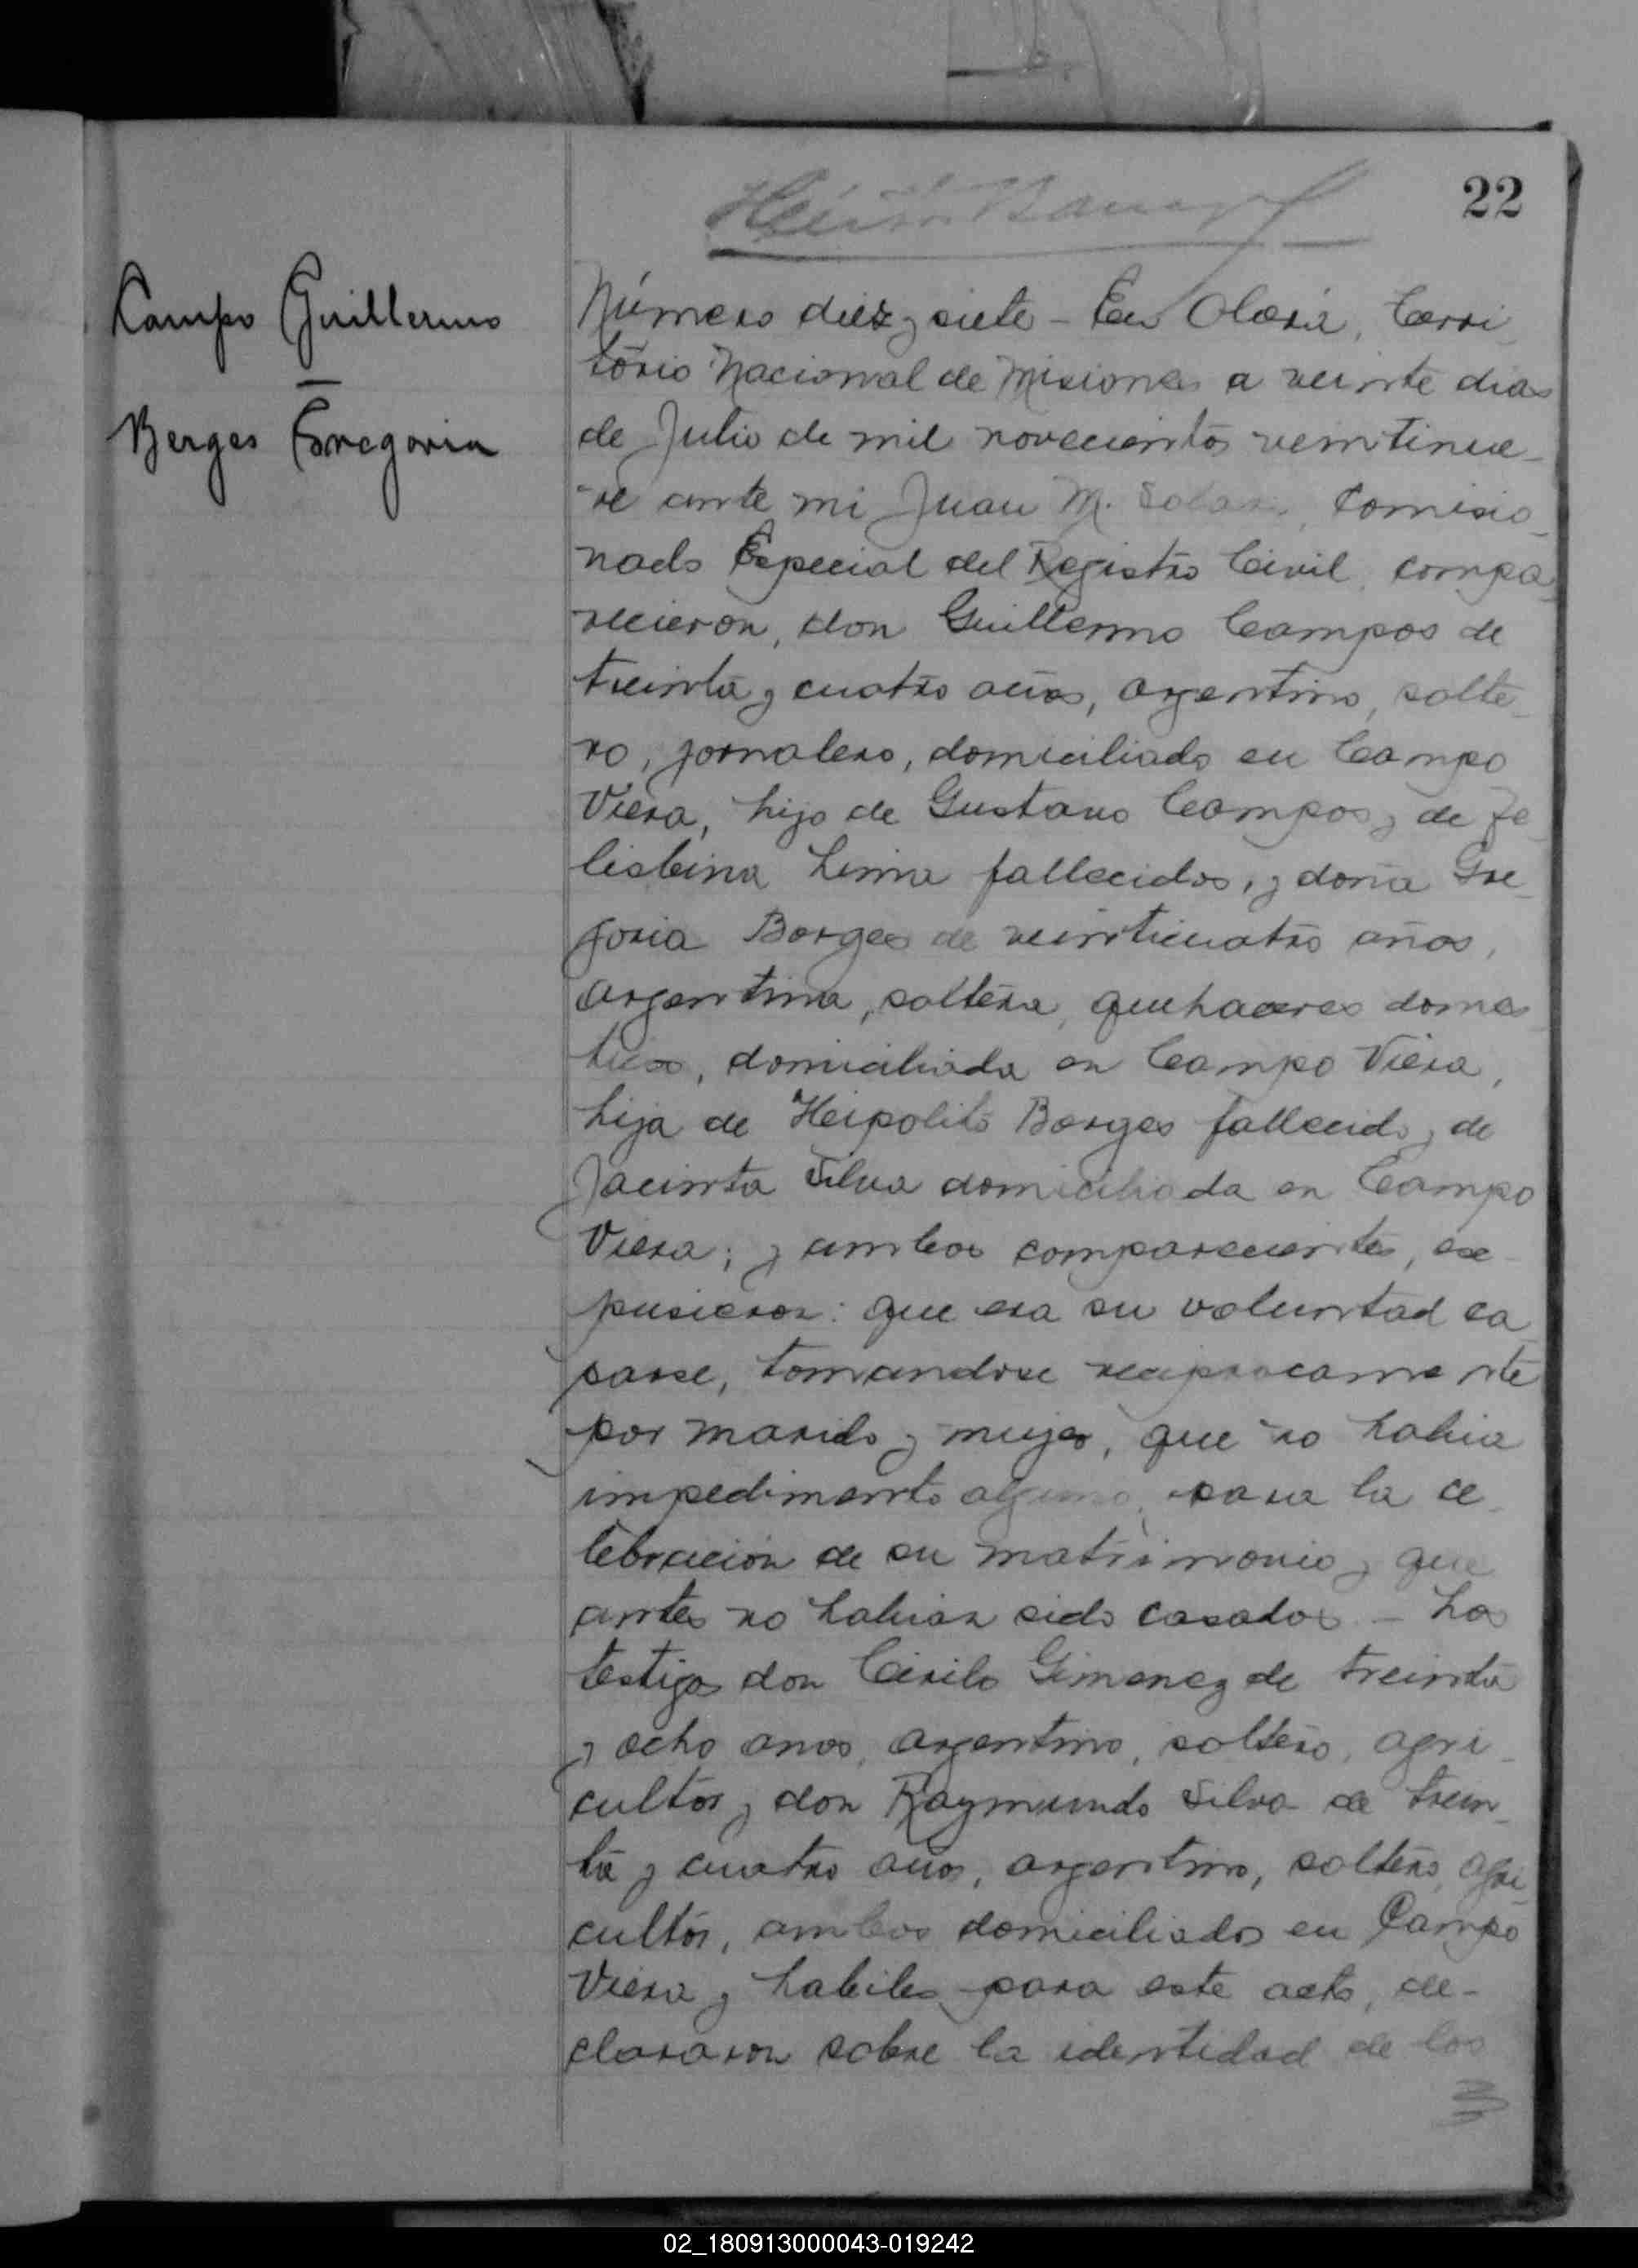 22
Campo Guillermo
—
Berges Gregoria
Número diez y siete - En Oberá, Terri
torio Nacional de Misiones a veinte dias
de Julio de mil novecientos veintinue-
ve ante mi Juan M. Comisio
nado Especial del Registro Civil, compa
recieron, don Guillermo Campos de
treinta y cuatro años, argentino, solte
ro, jornalero, domiciliado en Campo
Viera, hijo de Gustavo Campos y de Fe
lisbina Lima fallecidos, y doña Gre
goria Borges de veinticuatro años,
argentina, soltera, quehaceres domes
ticos, domiciliada en Campo Viera,
hija de Heipolito Borges fallecido y de
Jacinta Silva domiciliada en Campo
Viera; y ambos comparecientes, ex-
pusieron: que era su voluntad ca
sarse, tomandose reciprocamente
por marido y mujer, que no habia
impedimento alguno, para la ce
lebración de su matrimonio y que
antes no habian sido casados - Los
testigos don Cirilo Gimenez de treinta
y ocho anos, argentino, soltero, agri-
cultor y don Raymundo Silva de trein
ta y cuatro años, argentino, soltero, agri
cultor, ambos domiciliados en Campo
Viera y habiles para este acto, de-
clararon sobre la identidad de los
02_180913000043-019242